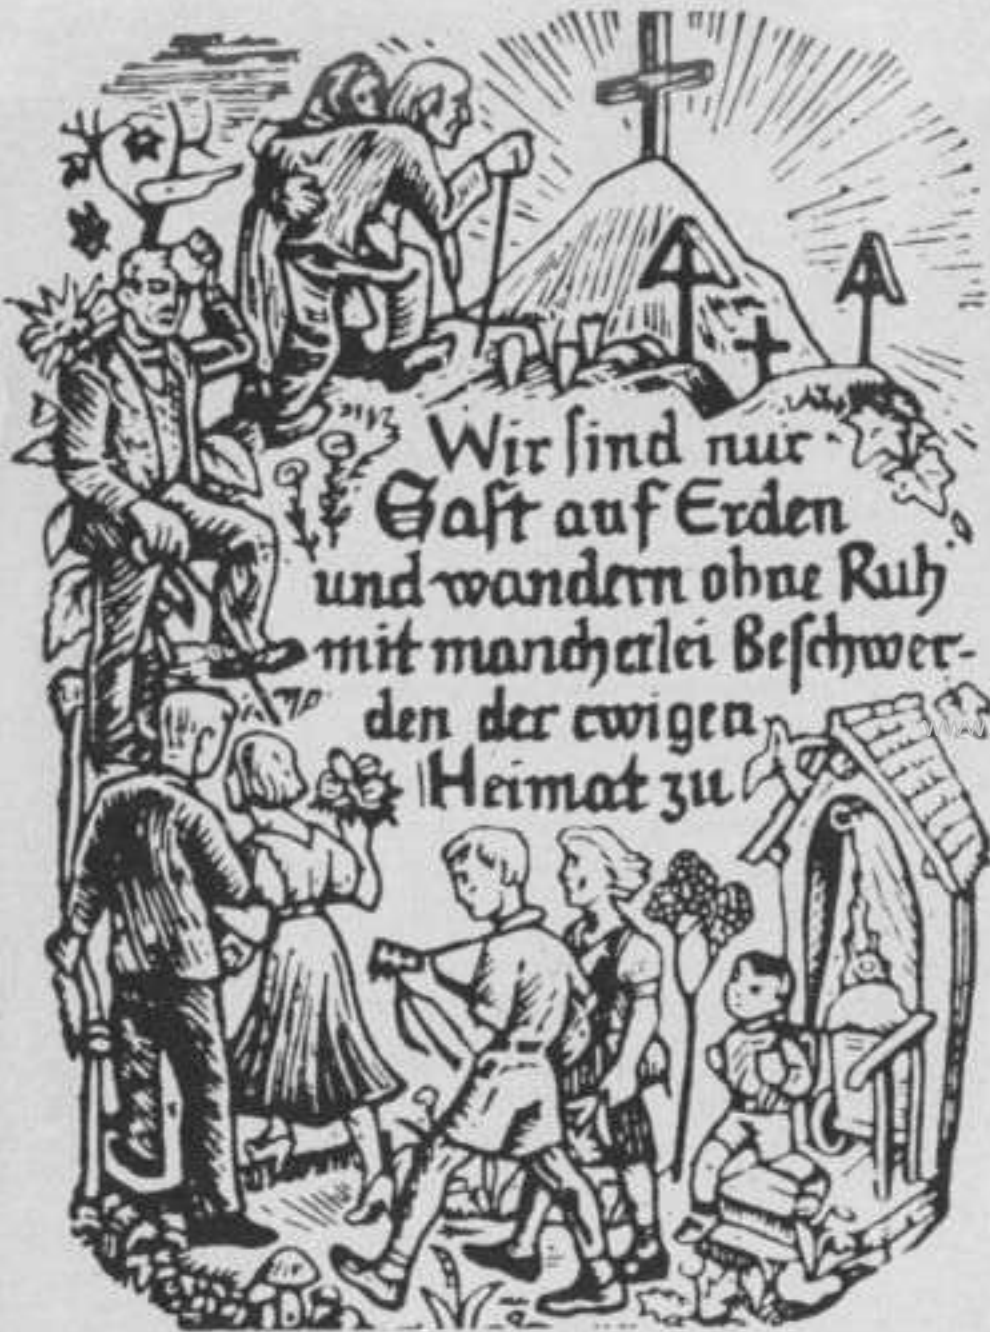 Wir sind nur
Gast auf Erden
und wandern ohne Ruh
mit mancherlei Beschwer-
den der ewigen
Heimat zu